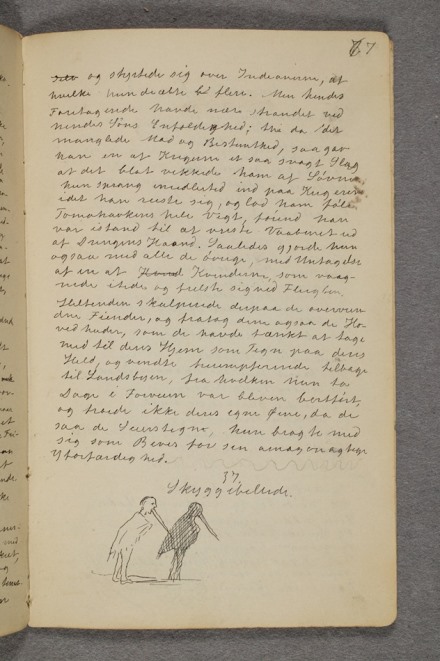 77
og styrtede sig over Indianerne, af
hvilke hun dræbte flere. Men hendes
Foretagende havde nær strandet ved
hendes Søns Enfoldighed; thi da det
manglede Mod og Bestemthed, saa gav
han en af Krigerne et saa svagt Slag
at det blot vækkede ham af Søvne
hun sprang imidlertid ind paa Krigeren
idet han reiste sig, og lod ham føle
Tomahawkens hele Vægt, førend han
var istand til at vriste Vaabenet ud
af Drengens Haand. Saaledes gjorde hun
ogsaa med alle de øvrige, med Undtagelse
af en af Kvinderne, som vaag-
nede itide og frelste sig ved Flugten.
Heltinden skalperede derpaa de overvun
dne Fiender, og fratog dem ogsaa de Ho-
vedhuder, som de havde tænkt at tage
med til deres Hjem som Tegn paa deres
Held, og vendte triumferende tilbage
til Landsbyen, fra hvilken hun to
Dage i Forveien var bleven bortført,
og troede ikke deres egne Øine, da de
saa de Seierstegn, hun bragte med
sig som Bevis for sen amazonagtige
Uforfærdethed.
37
Skyggebillede.